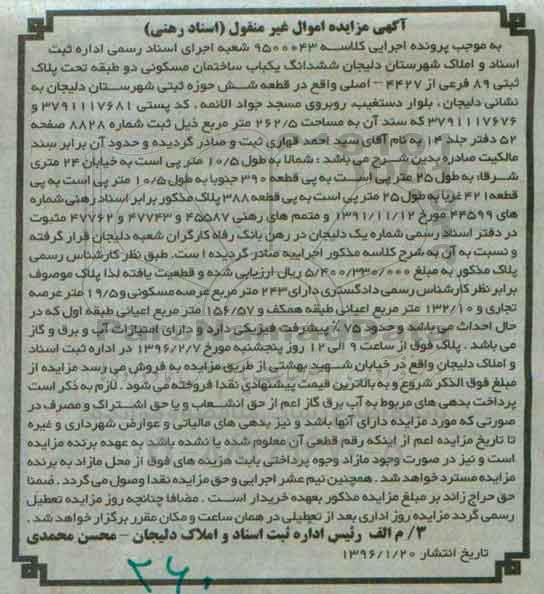 آگهی مزایده اموال غیر منقول (اسناد رهنی)
به موجب پرونده اجرایی کلاسه ۹۵۰۰۰۴۳ شعبه اجرای اسناد رسمی اداره ثبت
اسناد و املاک شهرستان دلیجان ششدانگ یکباب ساختمان مسکونی دو طبقه تحت پلاک
ثبتی ۸۹ فرعی از ۴۴۲۷ – اصلی واقع در قطعه شش حوزه ثبتی شهرستان دلیجان به
نشانی دلیجان ، بلوار دستغیب، روبروی مسجد جواد الائمه ، کد پستی ۳۷۹۱۱۱۷۶۸۱ و
۳۷۹۱۱۱۷۶۷۶ که سند آن به مساحت ۲۶۲/۵ متر مربع ذیل ثبت شماره ۸۸۲۸ صفحه
۵۲ دفتر جلد ۱۴ به نام آقای سید احمد قهاری ثبت و صادر گردیده و حدود آن برابر سند
مالکیت صادره بدین شرح می باشد : شمالا به طول ۱۰/۵ متر پی است به خیابان ۲۴ متری
شرقا: به طول ۲۵ متر پی است به پی قطعه ۳۹۰ جنوبا به طول ۱۰/۵ متر پی است به پی
قطعه ۴۲۱ غربا به طول ۲۵ متر پی است به پی قطعه ۳۸۸ پلاک مذکور برابر اسناد رهنی شماره
های ۴۴۵۹۹ مورخ ۱۳۹۱/۱۱/۱۲ و متمم های رهنی ۴۵۵۸۷ و ۴۷۷۴۳ و ۴۷۷۶۲ مثبوت
در دفتر اسناد رسمی شماره یک دلیجان در رهن بانک رفاه کارگران شعبه دلیجان قرار گرفته
و نسبت به آن به شرح کلاسه مذکور اجراییه صادر گردیده است. طبق نظر کارشناس رسمی
پلاک مذکور به مبلغ ۵/۴۰۰/۳۳۰/۰۰۰ ریال ارزیابی شده و قطعیت یافته لذا پلاک موصوف
برابر نظر کارشناس رسمی دادگستری دارای ۲۴۳ متر مربع عرصه مسکونی و ۱۹/۵ متر عرصه
تجاری و ۱۳۲/۱۰ متر مربع اعیانی طبقه همکف و ۱۵۶/۵۷ متر مربع اعیانی طبقه اول که در
حال احداث می باشد و حدود ۷۵ ٪ پیشرفت فیزیکی دارد و دارای امتیازات آب و برق و گاز
می باشد . پلاک فوق از ساعت ۹ الی ۱۲ روز پنجشنبه مورخ ۱۳۹۶/۲/۷ در اداره ثبت اسناد
و املاک دلیجان واقع در خیابان شهید بهشتی از طریق مزایده به فروش می رسد مزایده از
مبلغ فوق الذکر شروع و به بالاترین قیمت پیشنهادی نقدا فروخته می شود . لازم به ذکر است
پرداخت بدهی های مربوط به آب برق گاز اعم از حق انشعاب و یا حق اشتراک و مصرف در
صورتی که مورد مزایده دارای آنها باشد و نیز بدهی های مالیاتی و عوارض شهرداری و غیره
تا تاریخ مزایده اعم از اینکه رقم قطعی آن معلوم شده یا نشده باشد به عهده برنده مزایده
است و نیز در صورت وجود مازاد وجوه پرداختی بابت هزینه های فوق از محل مازاد به برنده
مزایده مسترد خواهد شد . همچنین نیم عشر اجرایی و حق مزایده نقدا وصول می گردد . ضمنا
حق حراج زائد بر مبلغ مزایده مذکور بعهده خریدار است . مضافا چنانچه روز مزایده تعطیل
رسمی گردد مزایده روز اداری بعد از تعطیلی در همان ساعت و مکان مقرر برگزار خواهد شد .
۳/ م الف رئیس اداره ثبت اسناد و املاک دلیجان – محسن محمدی
تاریخ انتشار ۱۳۹۶/۱/۲۰
۲۶۰